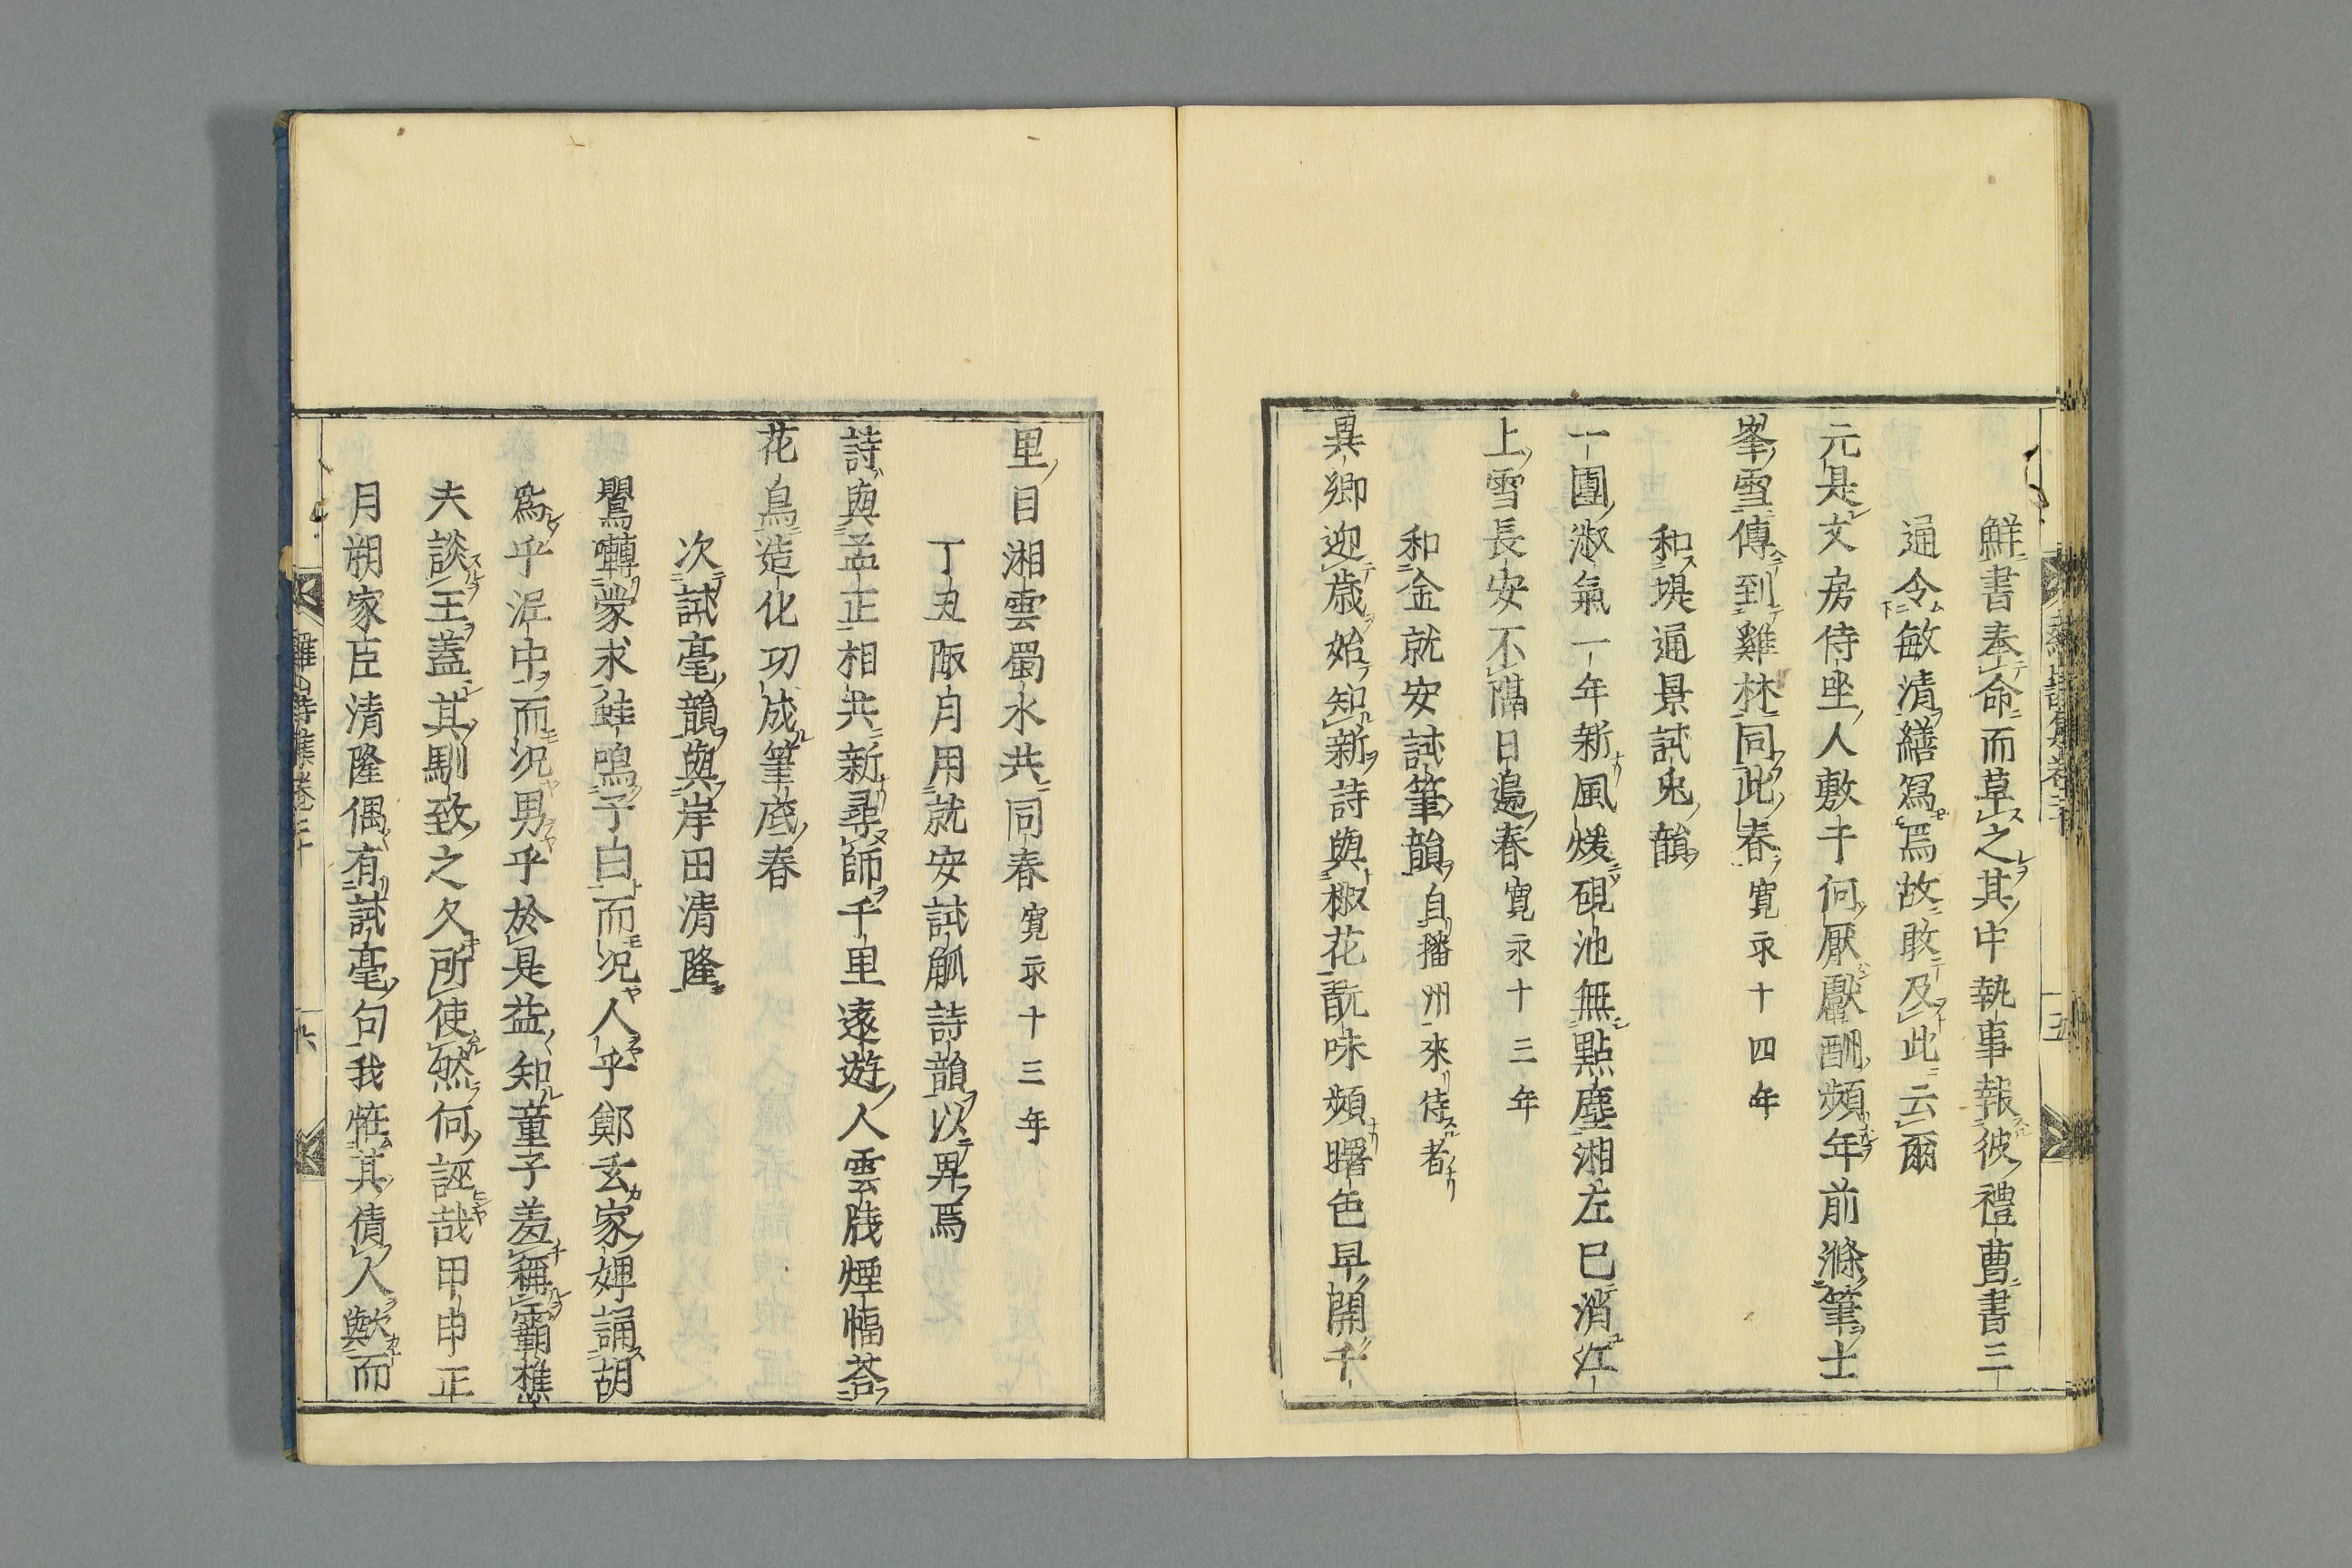 鮮書奉命而草之其中執事報彼禮曹書三
通令敏清繕寫焉故敢及此云爾
元是文房侍坐人敷于何厭獻酬頻年前滌筆士
峯雪傳到雞林同此春寬永十四年
和堤通景試兔韻
一團淑氣一年新風煖硯池無點塵湘左已消江
上雪長安不隔日邉春寬永十三年
和金就安試筆韻自播州來侍者
異鄉迎歳始知新詩與椒花翫味頻曙色早開千
里目湘雲蜀水共同春寬永十三年
丁丑陬月用就安試觚詩韻以畀焉
詩與孟正相共新尋師千里遠遊人雲牋煙幅荅
花鳥造化功成筆底春
次試毫韻與岸田清隆
鸎囀蒙求蛙鳴予白而况人乎鄭玄家婢誦胡
爲乎泥中而况男乎於是益知童子羞稱霸樵
夫談王蓋其馴致之久所使然何誣哉甲申正
月朔家臣清隆偶有試毫句我恠其倩人歟而
羅山詩集卷三十